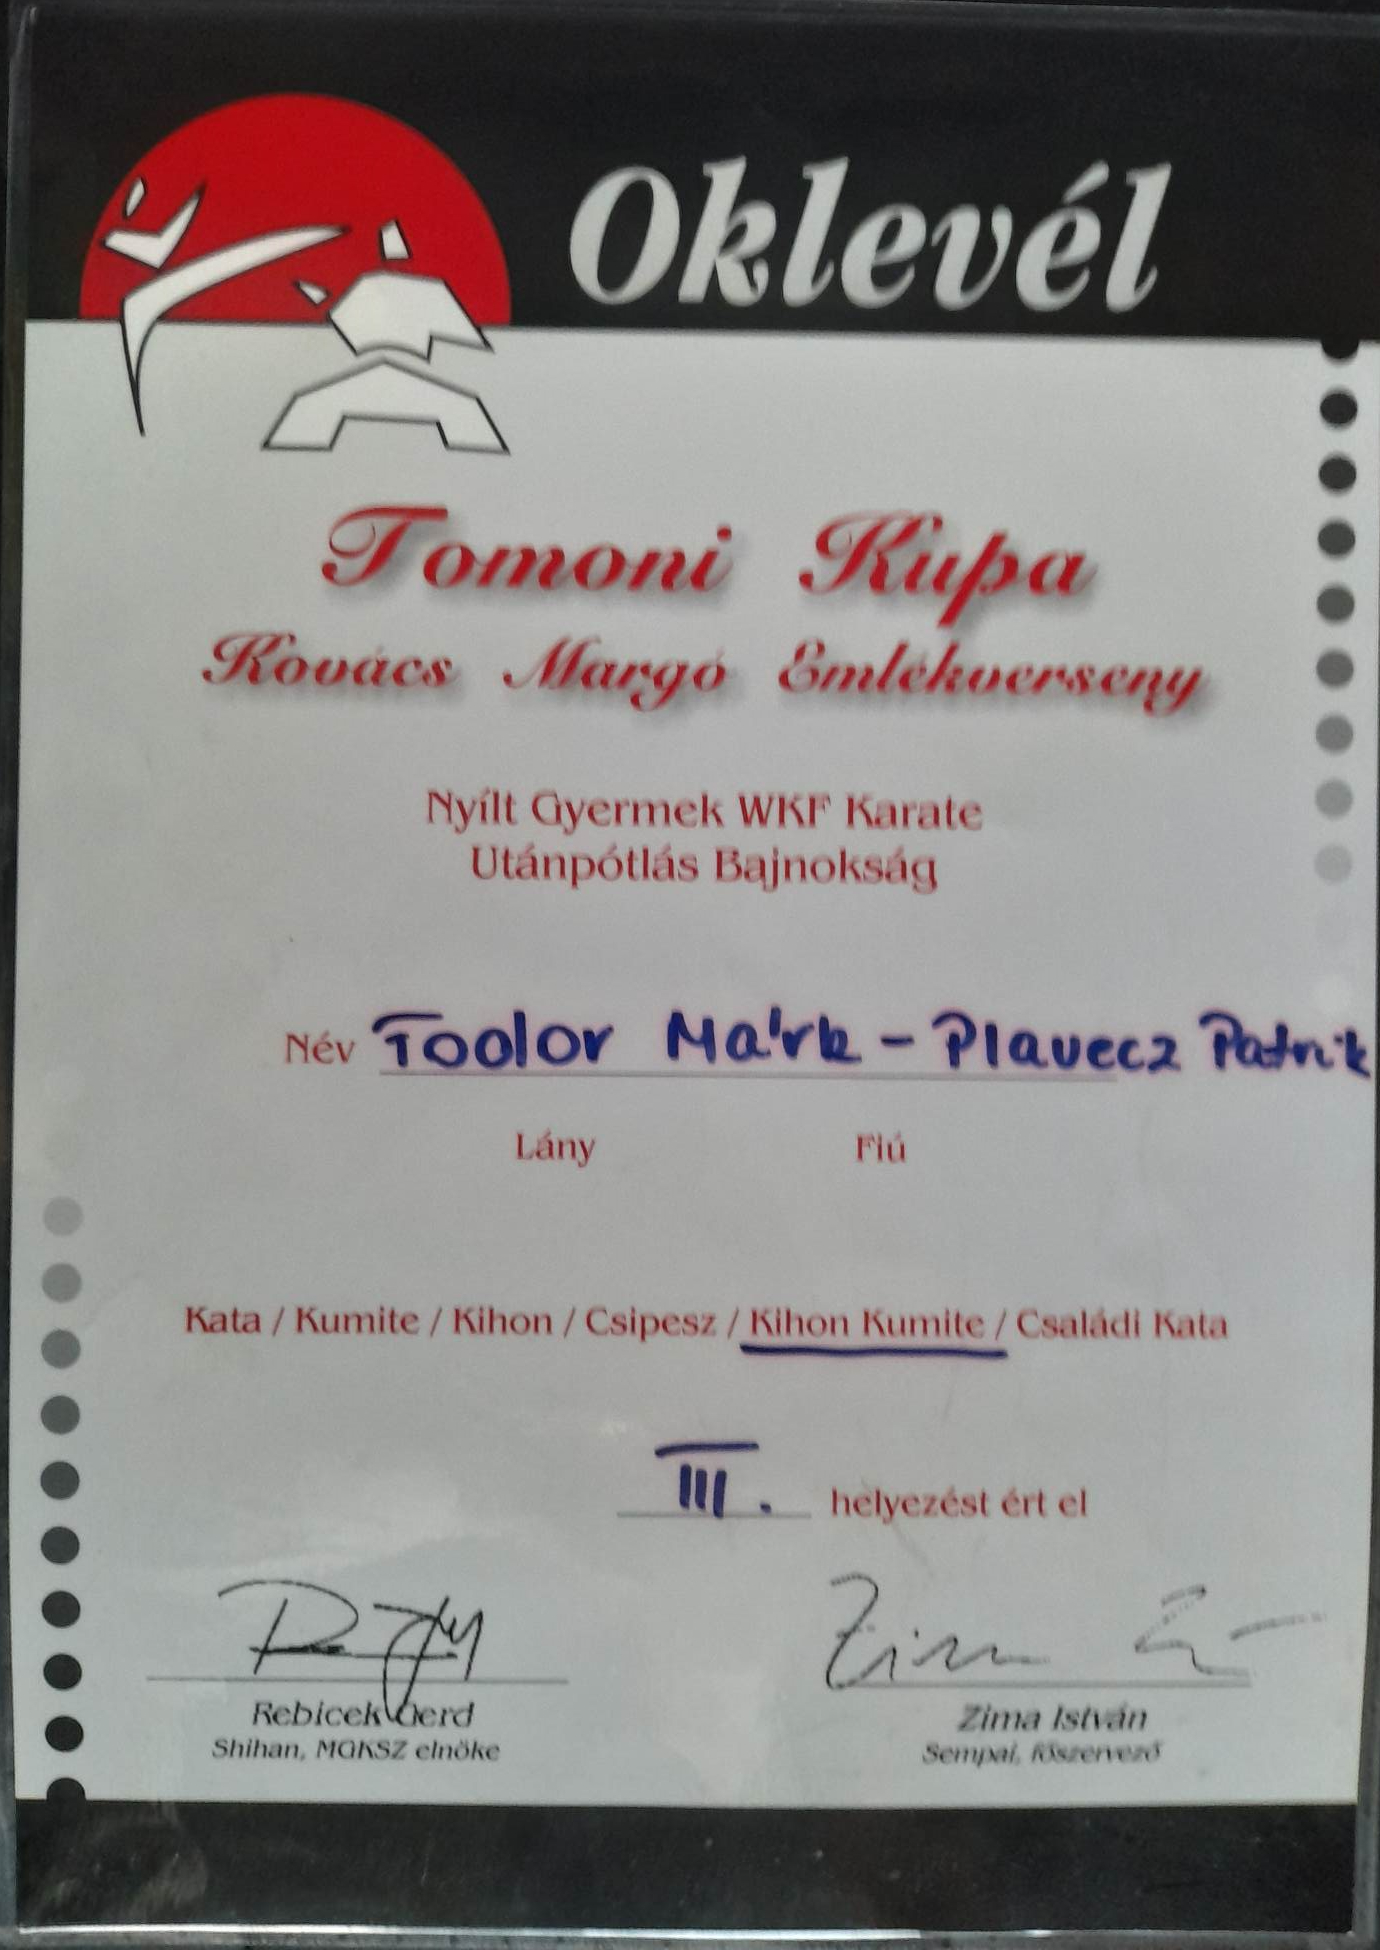 Oklevél
Tomoni Kupa
Kovács Margó Emlékverseny
Nyílt Gyermek WKF Karate
Utánpótlás Bajnokság
Név Fodor Márk - Plavecz Patrik
Lány Fiú
Kata / Kumite / Kihon / Csipesz / Kihon Kumite / Családi Kata
III. helyezést ért el
Rebicek Gerd Zima István
Shihan, MGKSZ elnöke Sempai, főszervező